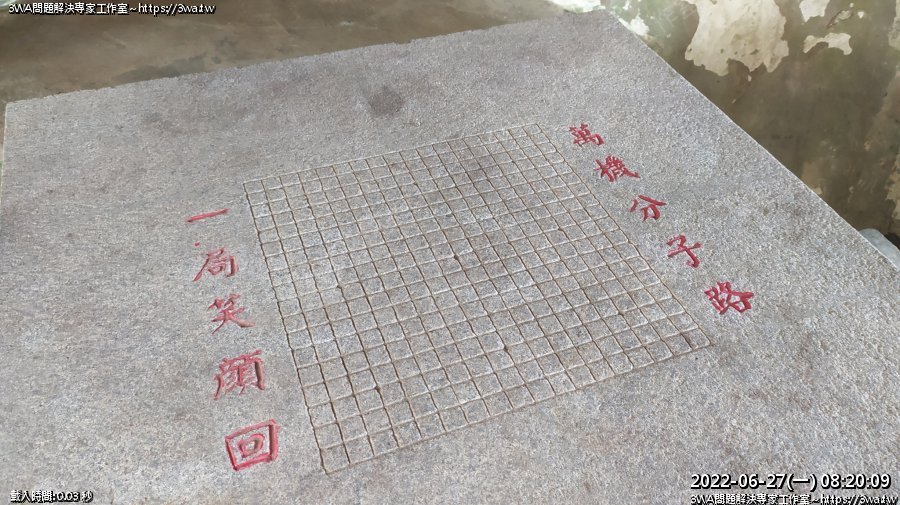 3WA問題解決專家工作室~https://3wa.tw
萬機分子路
一局笑顏回
載入時間: 0.03 秒
2022-06-27(一) 08:20:09
3WA問題解決專家工作室~https://3wa.tw